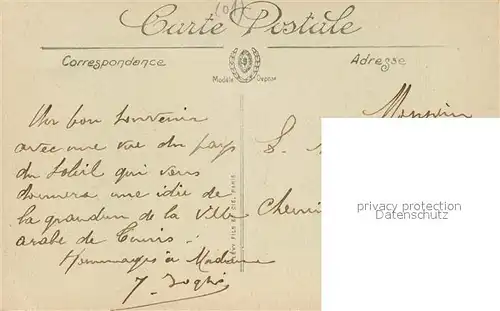 Carte Postale
Correspondance
Adresse
Modèle Déposé
Un bon souvenir
avec une vue du pays
du soleil qui vous
donnera une idée de
la grandeur de la ville
arabe de Tunis.
Hommages à Madame
LÉVY FILS ET CIE, PARIS
Monsieur
S.
privacy protection
Datenschutz